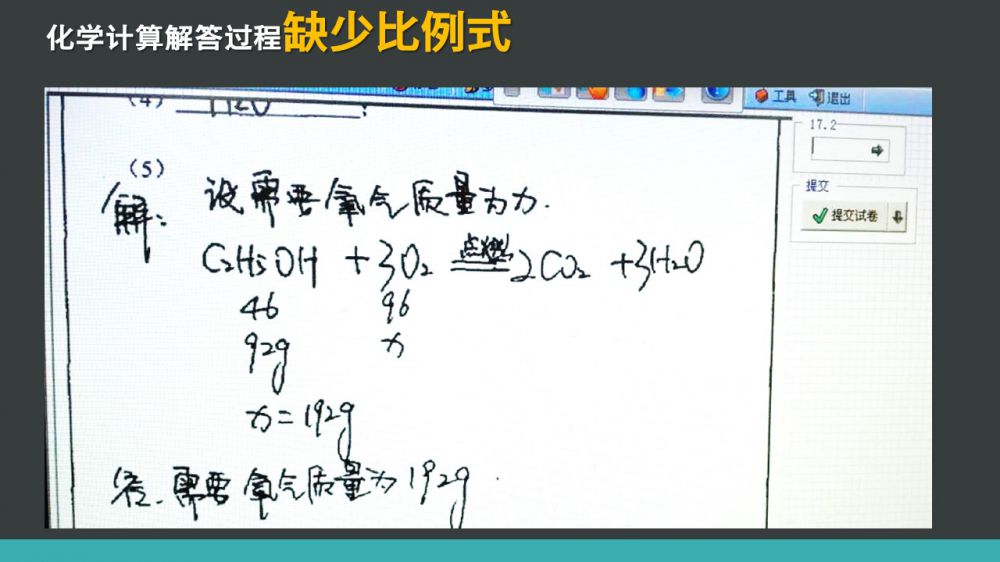 化学计算解答过程缺少比例式
工具 退出
(4) H2O
17.2
(5)
提交
提交试卷
解：设需要氧气质量为x.
C2H5OH + 3O2 点燃 2CO2 + 3H2O
46 96
92g x
x = 192g
答、需要氧气质量为192g.